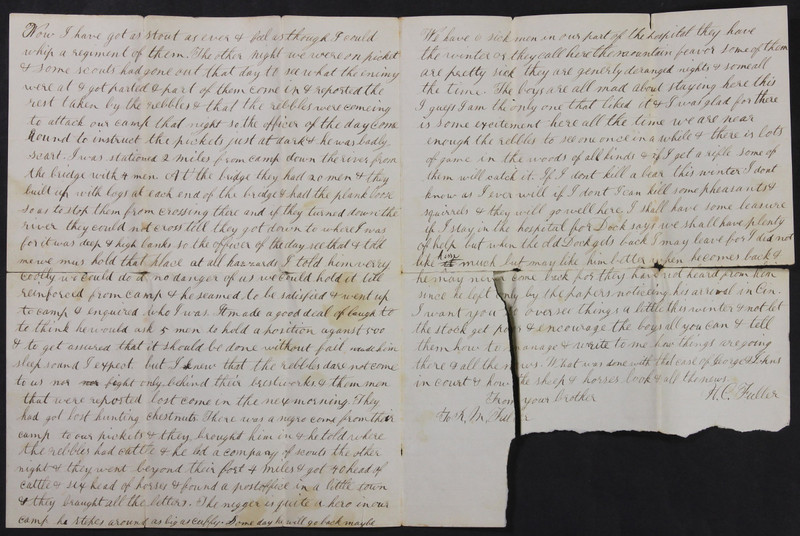 Now I have got as stout as ever & feel as though I could
whip a regiment of them. The other night we were on picket
& some scouts had gone out that day to see what the enimy
were at & got parted & part of them come in & reported the
rest taken by the rebbles & that the rebbles were comeing
to attack our camp that night so the officer of the day come
round to instruct the pickets just at dark & he was badly
scart. I was stationed 2 miles from camp down the river from
the bridge with 4 men. At the bridge they had 20 men & they
built up with logs at each end of the bridge & had the plank loose
so as to stop them from crossing there and if they turned down the
river they could not cross till they got down to where I was
for it was deep & high banks so the officer of the day see that & told
me we mus hold that place at all hazzards I told him verry
cooly we could do it no danger of us we could hold it till
reinforced from camp & he seamed to be satisfied & went up
to camp & enquired who I was. It made a good deal of laugh to
to think he would ask 5 men to hold a position against 500
& to get assured that it should be done without fail made him
sleep sound I expect but I knew that the rebbles dare not come
to us nor fight only behind their brestworks & them men
that were reported lost come in the next morning. They
had got lost hunting chestnuts. There was a negro come from their
camp to our pickets & they brought him in & he told where
the rebbles had cattle & he led a company of scouts the other
night & they went beyond their fort 4 miles & got 40 head of
cattle & six head of horses & found a postoffice in a little town
& they braught all the letters. The nigger is quite a hero in our
camp he steps around as big as cuffy. Some day he will go back maybe
We have 6 sick men in our part of the hospital they have
the winter or they call here the mountain feavor some of them
are pretty sick they are generly deranged nights & some all
the time. The boys are all mad about staying here this
I guess I am the only one that liked it & I was glad for there
is some excitement here all the time we are near
enough the rebbles to see one once in a while & there is lots
of game in the woods of all kinds & if I get a rifle some of
them will catch it. If I dont kill a bear this winter I dont
know as I ever will if I dont I can kill some pheasants &
squirrels & they will go well here I shall have some leasure
if I stay in the hospital for Dock says we shall have plenty
of help but when the old Dock gets back I may leave for I did not
like him much but may like him better when he comes back &
he may never come back for they have not heard from him
since he left only by the papers noticeing his arrivel in Cin.
I want you to oversee things a little this winter & not let
the stock get poor & encourage the boys all you can & tell
them how to manage & write to me how things are going
there & all the news. What was done with that case of George & Johns
in court & how the sheep & horses look & all the news
From your brother
H. C. Fuller
To R. M. Fuller